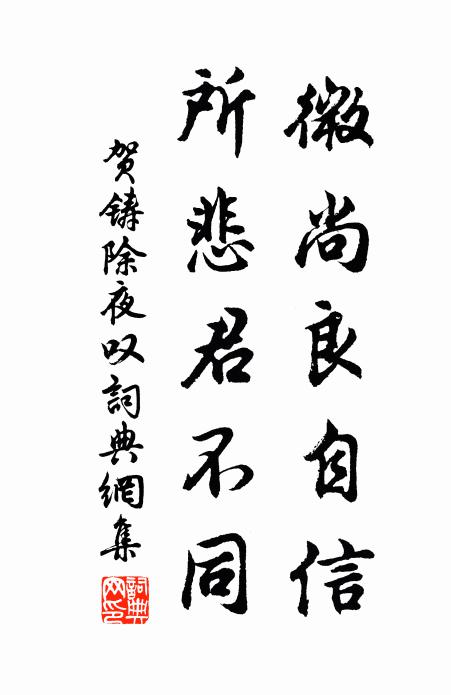 微尚良自信
所悲君不同
贺铸除夜叹詞典網集
詞典网印